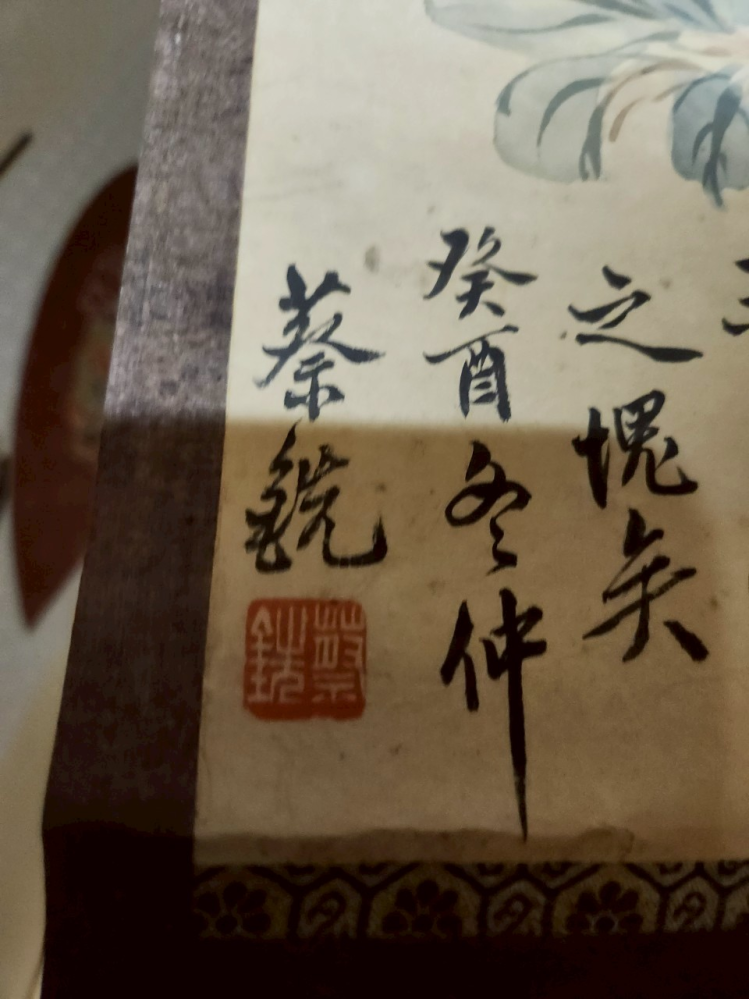 之愧矣
癸酉冬仲
蔡銑
蔡銑